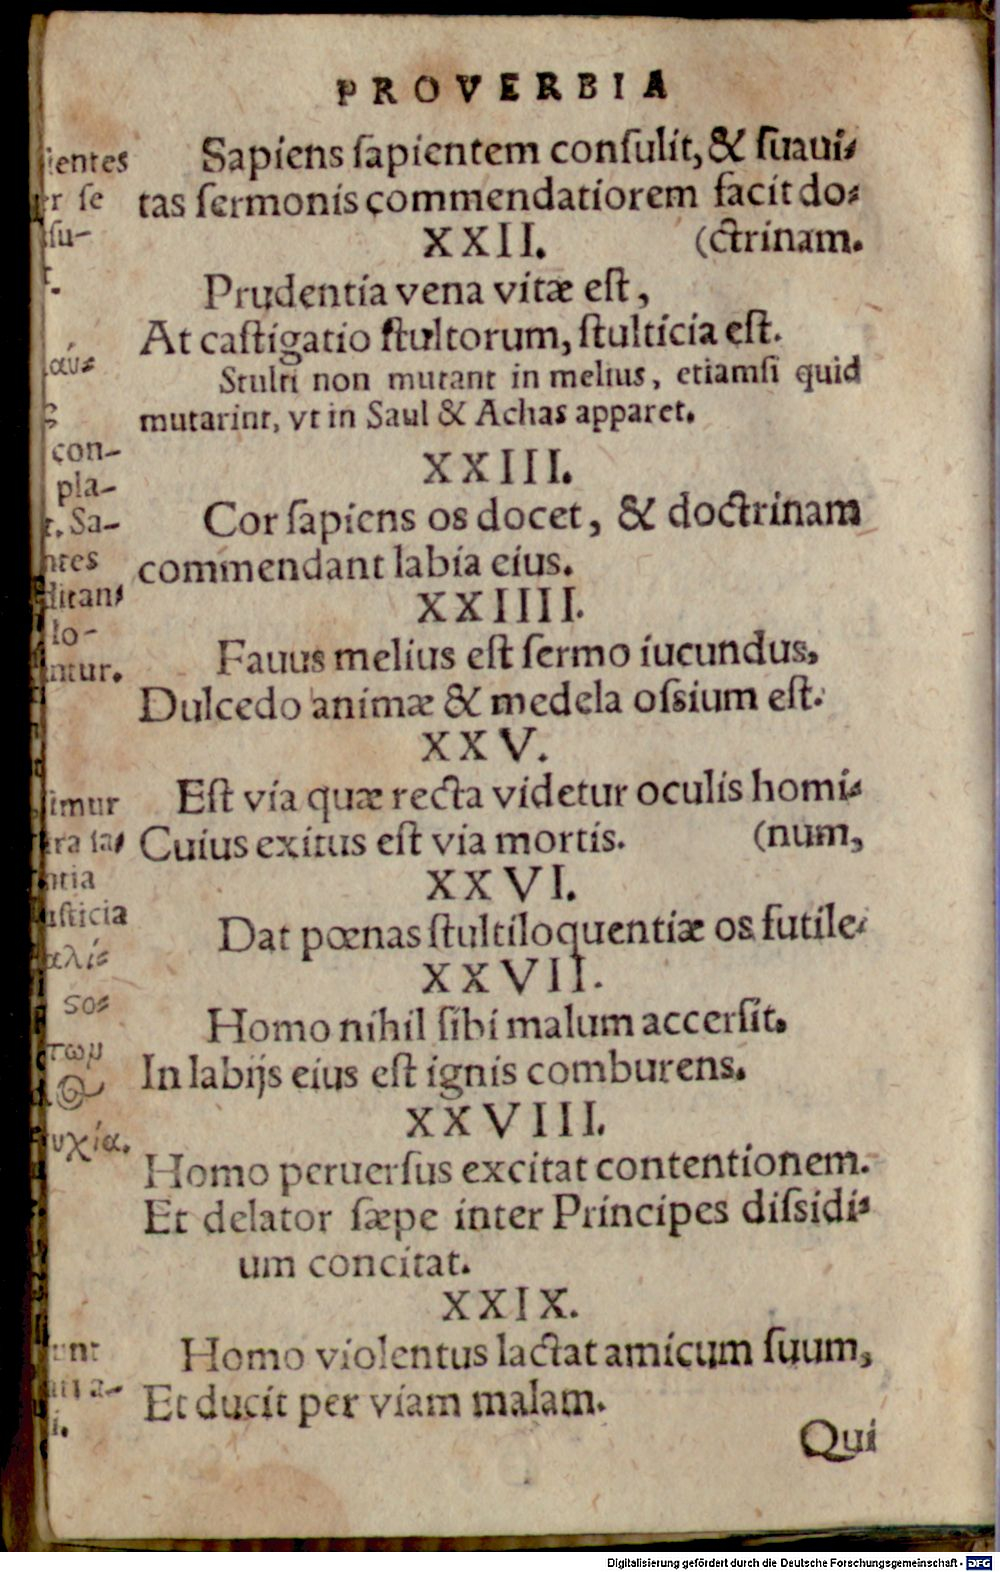 PROVERBIA
Sapiens ſapientem conſulit, & ſuaui⸗
tas ſermonis commendatiorem facit do⸗
XXII. (ctrinam.
Prudentia vena vitæ eſt,
At caſtigatio ſtultorum, ſtulticia eſt.
Stulti non mutant in melius, etiamſi quid
mutarint, vt in Saul & Achas apparet.
XXIII.
Cor ſapiens os docet, & doctrinam
commendant labia eius.
XXIIII.
Fauus melius eſt ſermo iucundus,
Dulcedo animæ & medela oſsium eſt.
XXV.
Eſt via quæ recta videtur oculis homi⸗
Cuius exitus eſt via mortis. (num,
XXVI.
Dat pœnas ſtultiloquentiæ os futile.
XXVII.
Homo nihil ſibi malum accerſit.
In labijs eius eſt ignis comburens.
XXVIII.
Homo peruerſus excitat contentionem.
Et delator ſæpe inter Principes diſsidi⸗
um concitat.
XXIX.
Homo violentus lactat amicum ſuum,
Et ducit per viam malam.
Qui
Digitalisierung gefördert durch die Deutsche Forschungsgemeinschaft - DFG